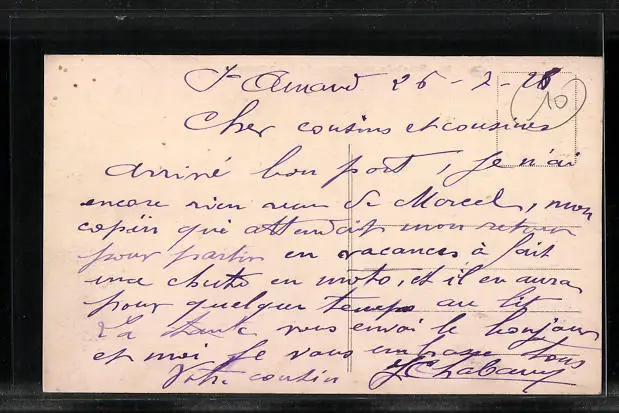 St Amand 26-7-28
10
Cher cousins et cousines
arrivé bon port, je n'ai
encore rien vu de Marcel, mon
copin qui attendait mon retour
pour partir en vacances à fait
une chute en moto, et il en aura
pour quelque temps au lit
La tante vous envoi le bonjour
et moi je vous embrasse tous
Votre cousin